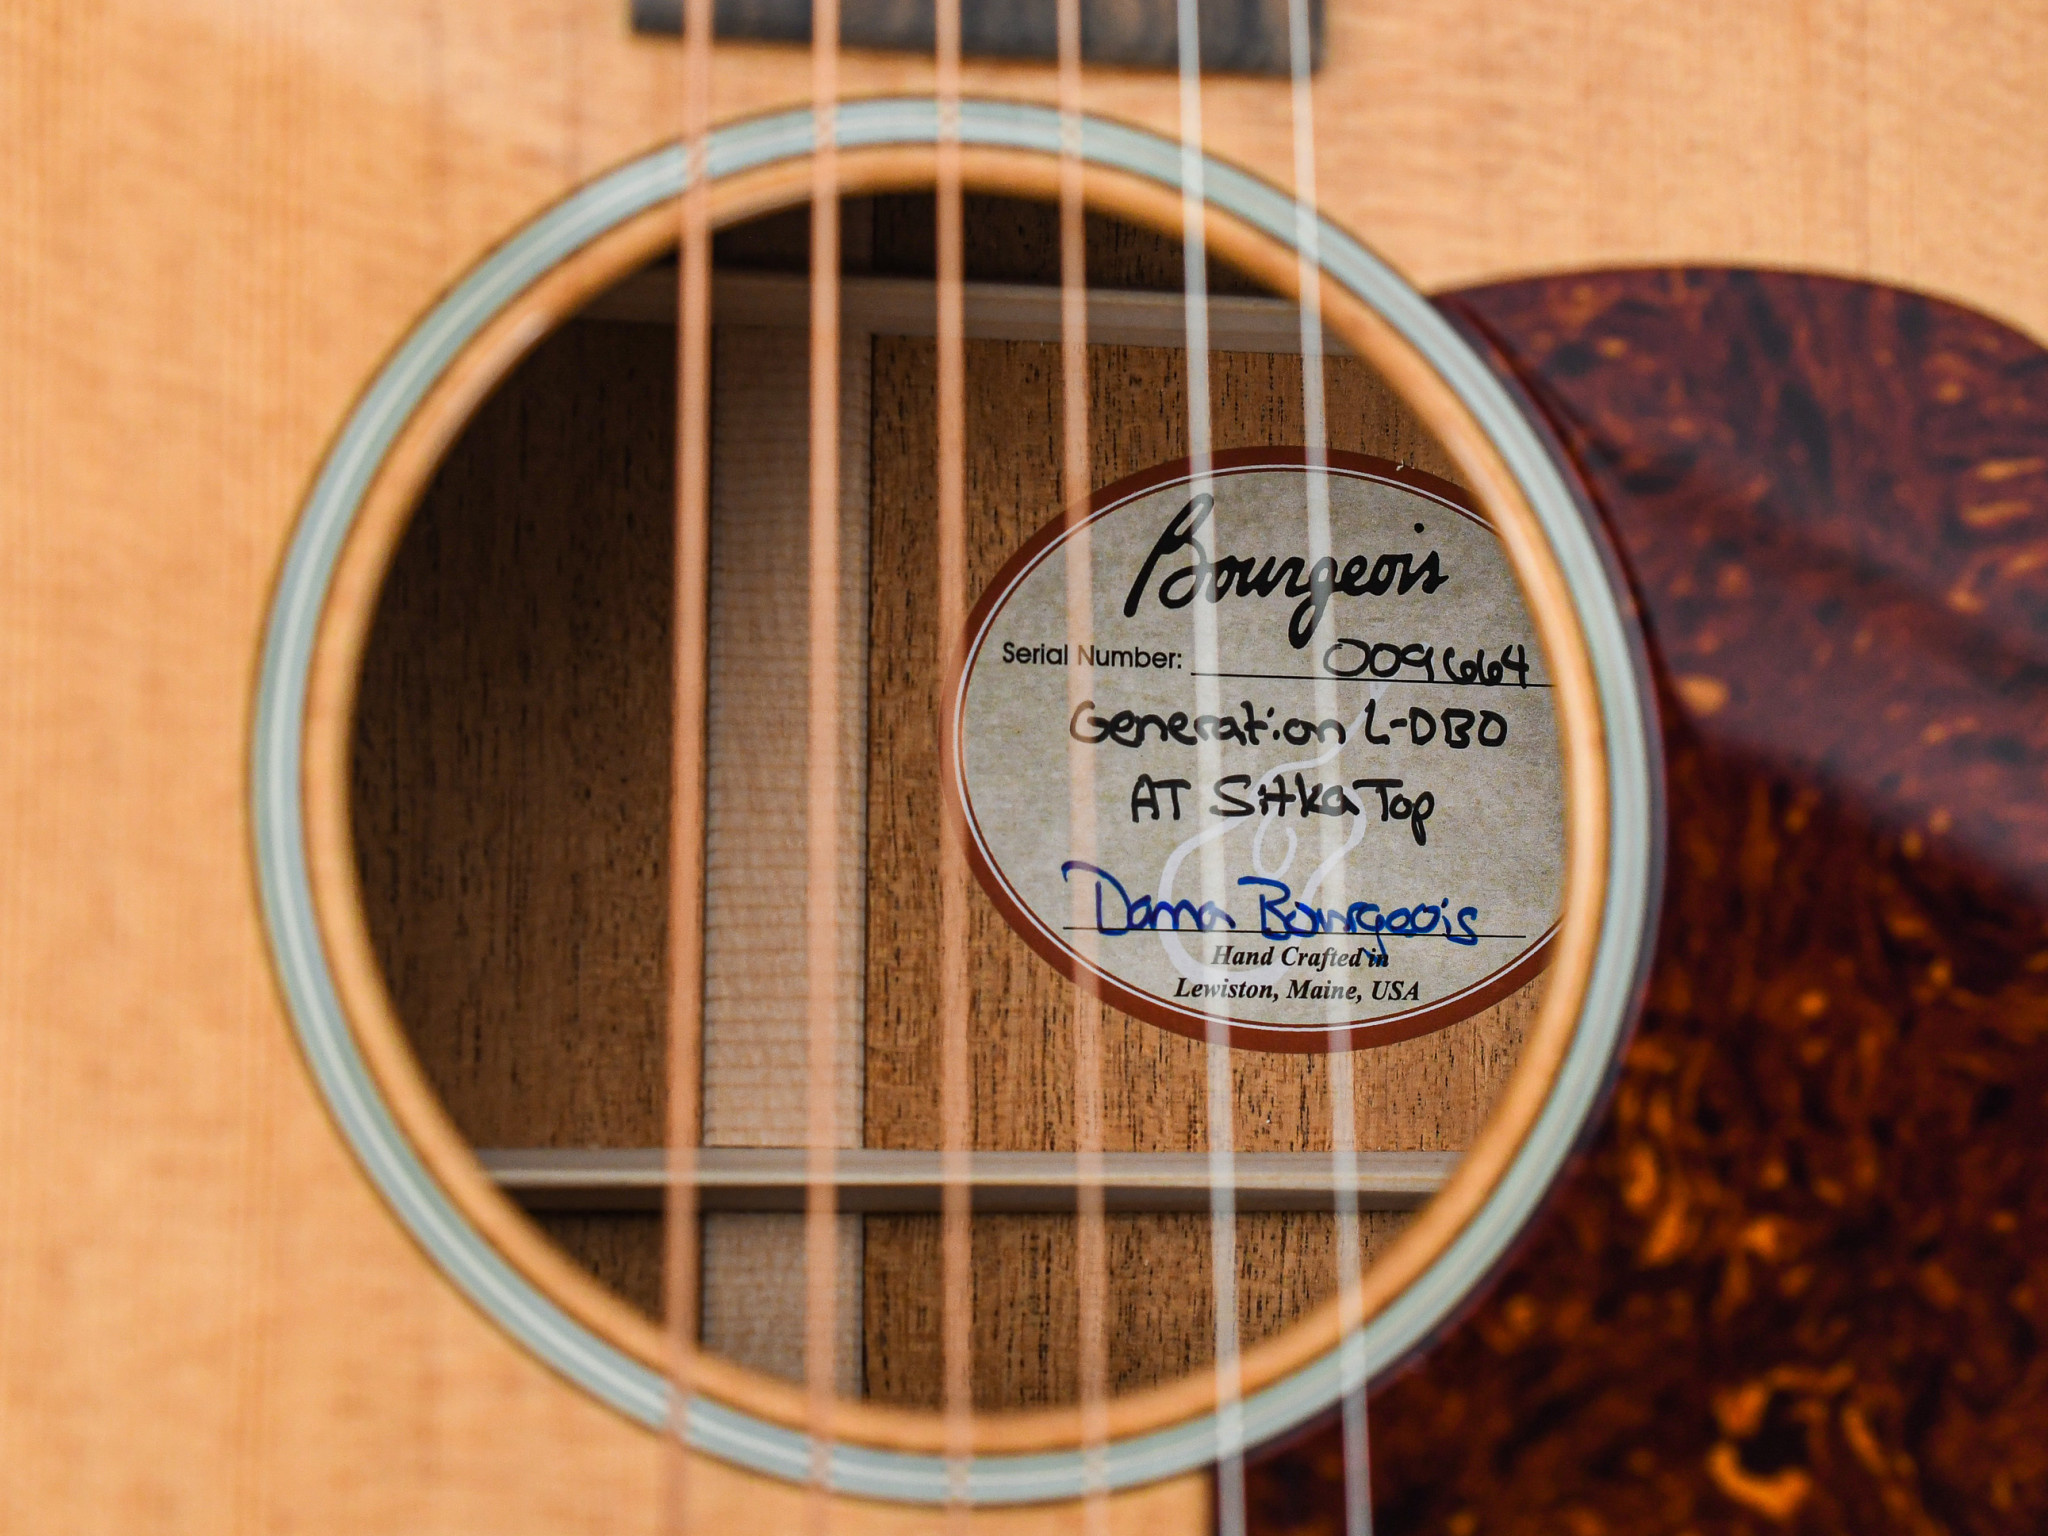 Bourgeois
Serial Number: 009664
Generation L-DBO
AT Sitka Top
Dana Bourgeois
Hand Crafted in
Lewiston, Maine, USA